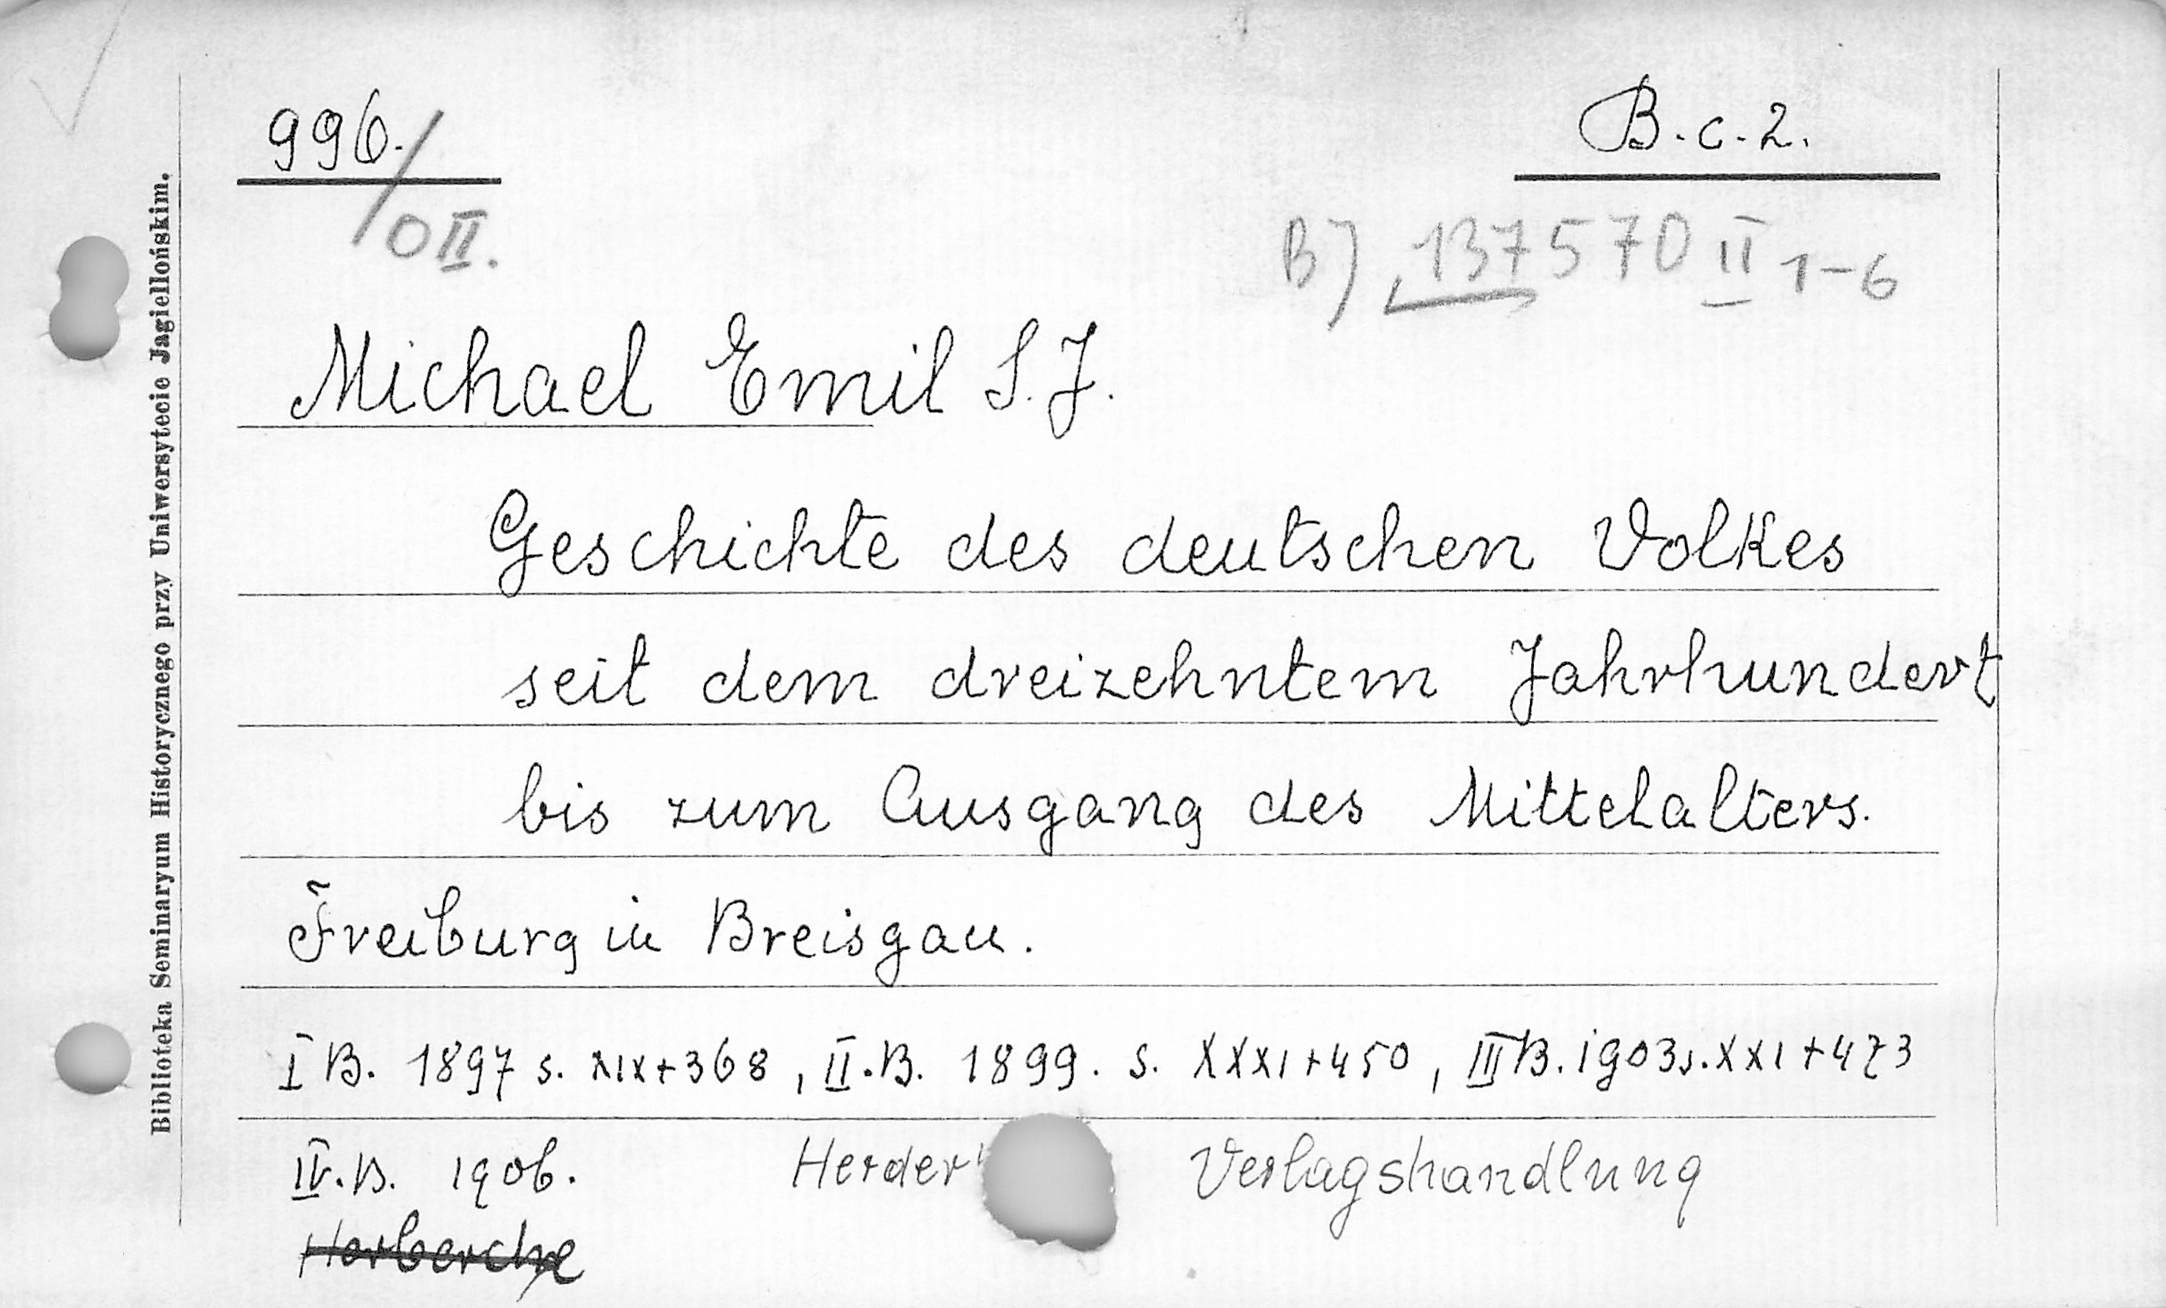 996. B.c.2.
0 II. B) 137570 II 1-6
Michael Emil S.J.
Geschichte des deutschen Volkes
seit dem dreizehntem Jahrhundert
bis zum Ausgang des Mittelalters.
Freiburg in Breisgau.
I B. 1897 s. XIX+368, II.B. 1899. s. XXXI+450, III B. 1903 s. XXI+473
IV.B. 1906. Herder Verlagshandlung
Biblioteka Seminaryum Historycznego przy Uniwersytecie Jagiellońskim.